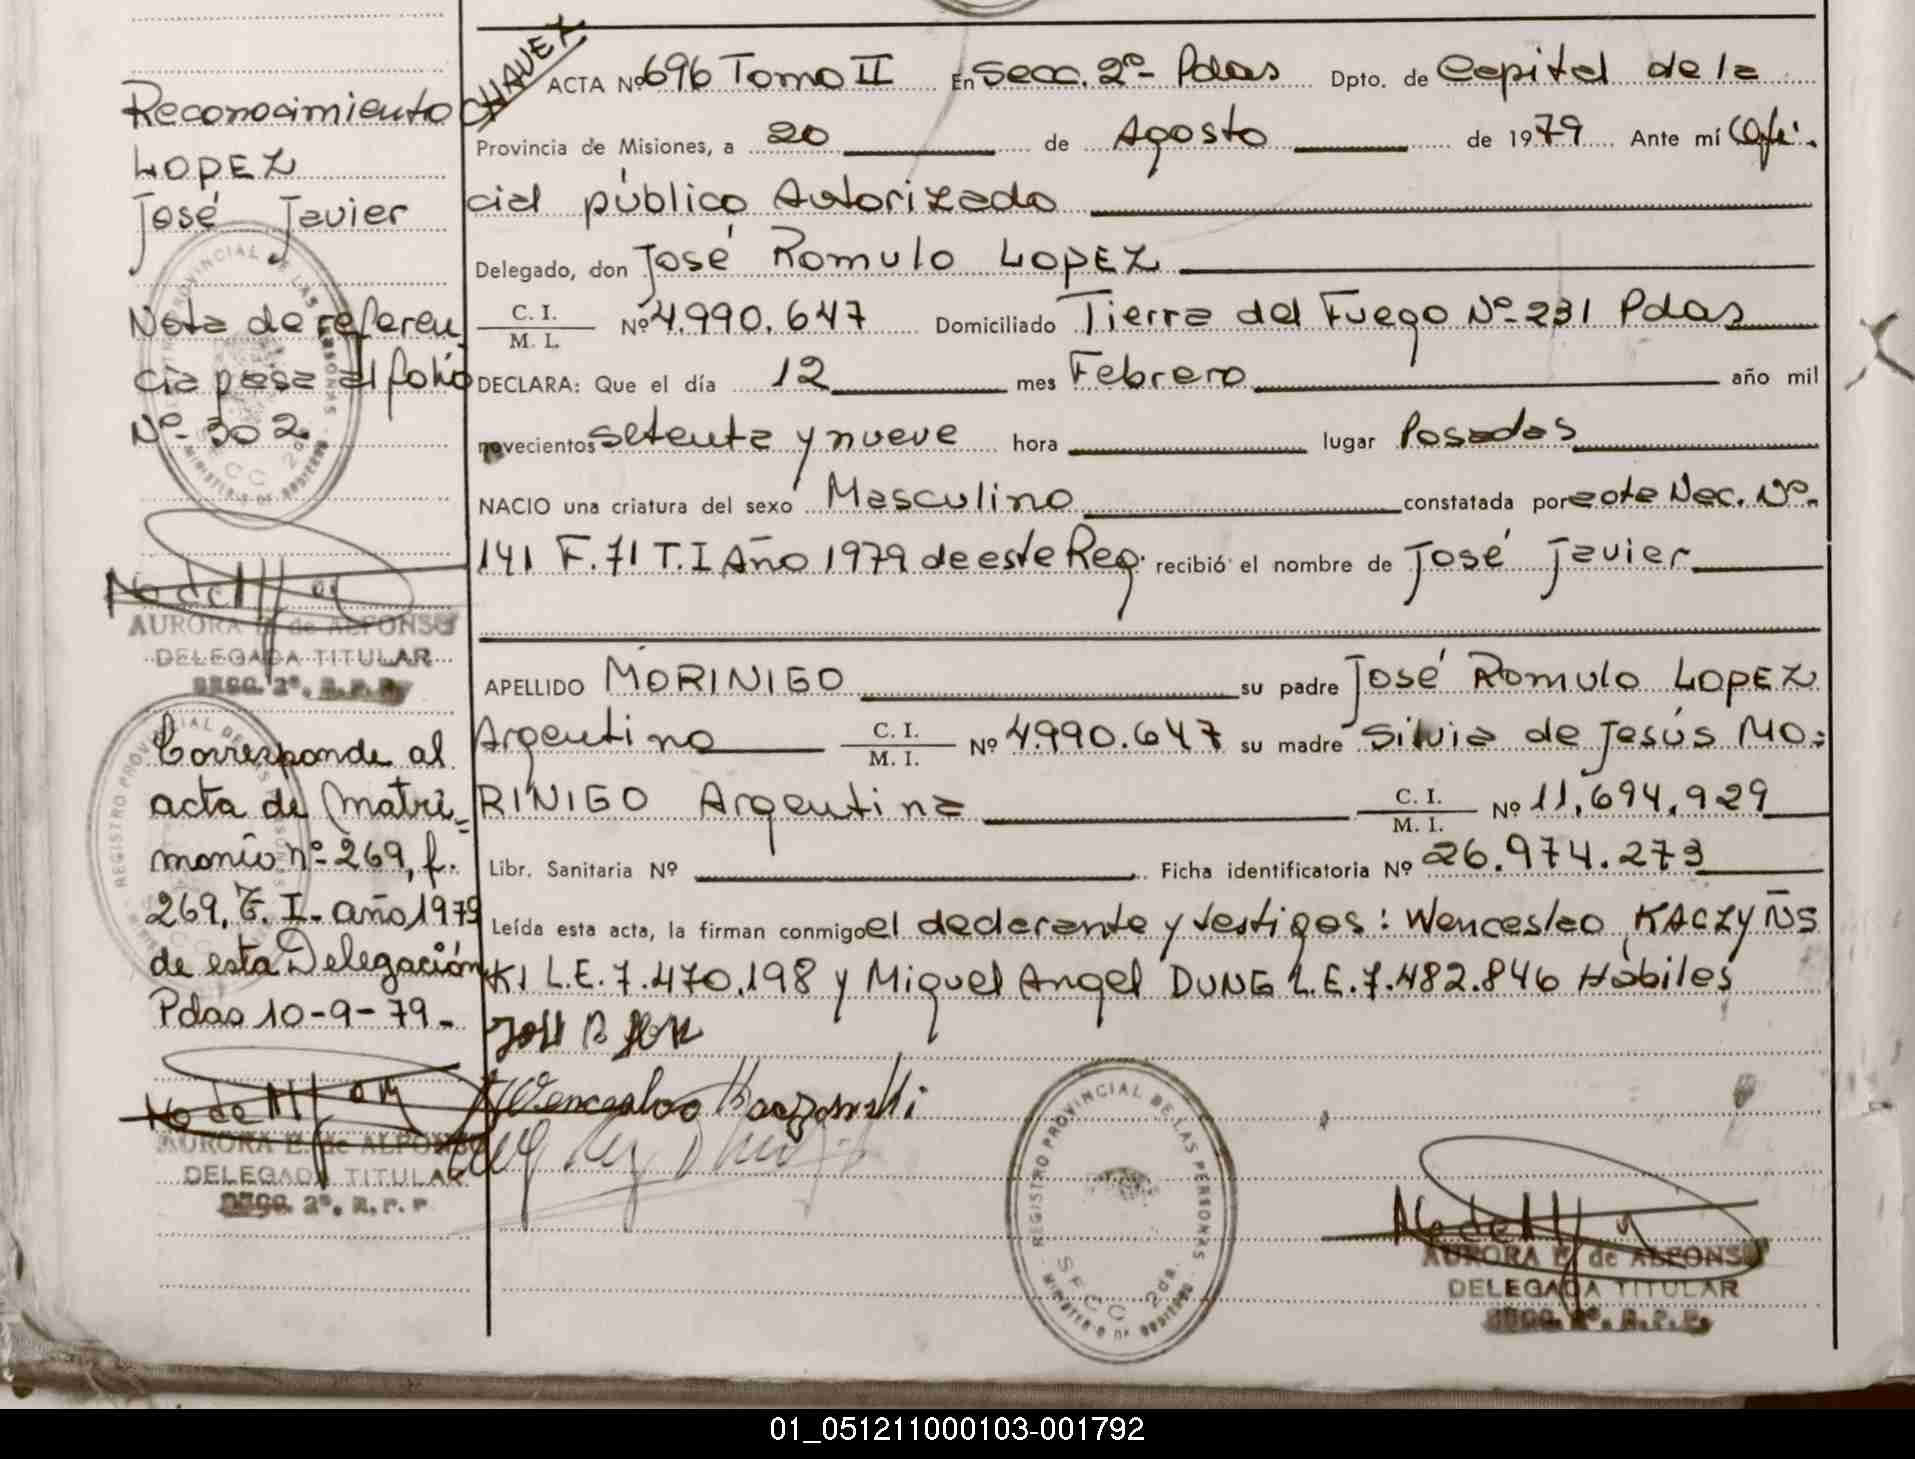 Reconocimiento
LOPEZ
José Javier
Nota de referen
cia pasa al folio
Nº- 302
AURORA E. de ALFONSO
DELEGADA TITULAR
SECC. 2ª. R.P.P.
Corresponde al
acta de Matri=
monio nº- 269, f.
269, T. I- año 1979
de esta Delegación
Pdas 10-9-79-
AURORA E. de ALFONSO
DELEGADA TITULAR
SECC. 2ª. R.P.P
CHAVEZ
ACTA Nº 696 Tomo II En Secc. 2º- Pdas Dpto. de Capital de la
Provincia de Misiones, a 20 de Agosto de 1979 Ante mí Ofi-
cial público Autorizado
Delegado, don José Romulo LOPEZ
C. I. / M. I. Nº 4.990.647 Domiciliado Tierra del Fuego Nº- 231 Pdas
DECLARA: Que el día 12 mes Febrero año mil
novecientos setenta y nueve hora lugar Posadas
NACIO una criatura del sexo Masculino constatada por acta Nac. Nº-
141 F. 71 T. I Año 1979 de este Reg. recibió el nombre de José Javier
APELLIDO MORINIGO su padre José Romulo LOPEZ
Argentino C. I. / M. I. Nº 4.990.647 su madre Silvia de Jesús MO=
RINIGO Argentina C. I. / M. I. Nº 11,694,929
Libr. Sanitaria Nº Ficha identificatoria Nº 26.974.273
Leída esta acta, la firman conmigo el declarante y testigos: Wenceslao KACZYÑS
KI L.E. 7.470.198 y Miguel Angel DUNG L.E. 7.482.846 Hábiles
REGISTRO PROVINCIAL DE LAS PERSONAS
SECC 2da.
MINISTERIO DE GOBIERNO
AURORA E. de ALFONSO
DELEGADA TITULAR
SECC. 2ª. R.P.P.
01_051211000103-001792